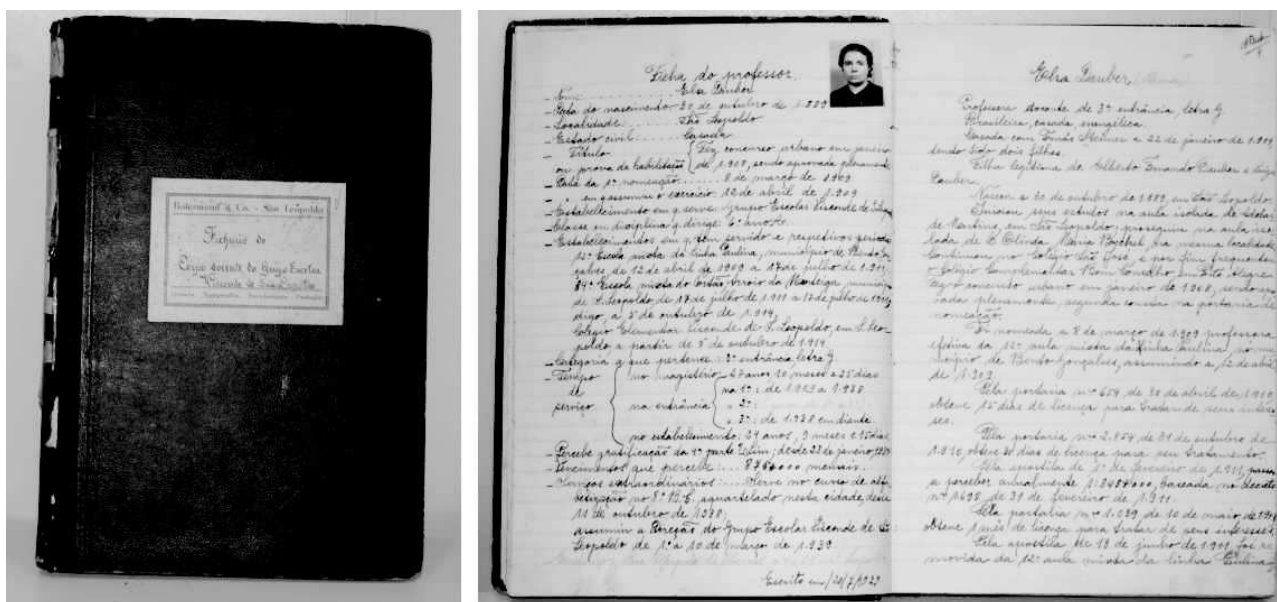 Rotermund & Co. - São Leopoldo
Fichário do
Corpo docente do Grupo Escolar
Visconde de São Leopoldo
Ficha do professor
- Nome Elsa Dauber
- Data do nascimento 20 de outubro de 1.889
- Localidade São Leopoldo
- Estado civil Casada
- Título Fez concurso urbano em janeiro
ou prova de habilitação de 1.908, sendo aprovada plenamente
- Data da 1ª nomeação 8 de março de 1909
- " em q assumiu o exercício: 12 de abril de 1.909
- Estabelecimento em q serve: Grupo Escolar Visconde de S. Leop.
- Classe ou disciplina q dirige: 1º ano
- Estabelecimentos em q tem servido e respectivos
12ª Escola mista da linha Paulina, município de Bento Gon-
çalves, de 12 de abril de 1909 a 17 de julho de 1911
84ª Escola mista do Portão, Arroio da Manteiga,
de S. Leopoldo, de 17 de julho de 1911 a 17 de julho de
digo, a 5 de outubro de 1.914,
Colégio Elementar Visconde de S. Leopoldo, em S. Leo-
poldo, a partir de 5 de outubro de 1.914
- Categoria q que pertence: 3ª entrância letra G.
- Tempo de serviço
no magistério - 27 anos, 10 meses e 25 dias
na entrância
na 1ª: de 1909 a 1938
" 2ª:
" 3ª: de 1.938 em diante
no estabelecimento: 24 anos, 9 meses e 15 dias
- Percebe gratificação da 4ª parte? Sim, desde 22 de janeiro,
- Vencimentos que percebe: mensais.
- Serviços extraordinários: Serve no curso de alfa-
betização no 8º B.C. aquartelado nesta cidade, desde
11 de outubro de 1938;
assumiu a Direção do Grupo Escolar Visconde de São
Leopoldo de 1º a 10 de março de 1.939.
Escrito em /20/7/1939
Elsa Dauber
Professora docente de 3ª entrância, letra G.
Brasileira, casada, evangélica.
Casada com Tomás Steiner a 22 de janeiro de
tendo tido dois filhos.
Filha legítima de Alberto Fernando Dauber e
Dauber.
Nasceu a 20 de outubro de 1.889, em São Leopoldo.
Iniciou seus estudos na aula isolada de
de Martino, em São Leopoldo; prosseguiu na aula iso-
lada de D. Olinda Maria na mesma localidade.
Continuou, no Colégio São José, e por fim frequentou
o Colégio Complementar Bom Conselho em Pôrto Alegre.
Fez o concurso urbano em janeiro de 1.908, sendo apro-
vada plenamente, segundo consta na portaria de
nomeação.
Foi nomeada a 8 de março de 1.909 professora
efetiva da 12ª aula mista da linha Paulina no mu-
nicípio de Bento Gonçalves, assumindo a 12 de abril
de 1.909.
Pela portaria nº 659, de 30 de abril de 1.910,
obteve 15 dias de licença para tratar de seus interes-
ses.
Pela portaria nº 2.854 de 31 de outubro de
1.910, obteve 30 dias de licença para seu tratamento.
Pela apostila de 1º de fevereiro de 1.911, passa
a perceber anualmente baseada no decreto
nº 1698 de 31 de fevereiro de 1.911.
Pela portaria nº 1.039 de 10 de maio de
obteve 1 mês de licença para tratar de seus interesses.
Pela apostila de 19 de junho de 1.911, foi re-
movida da 12ª aula mista da linha Paulina